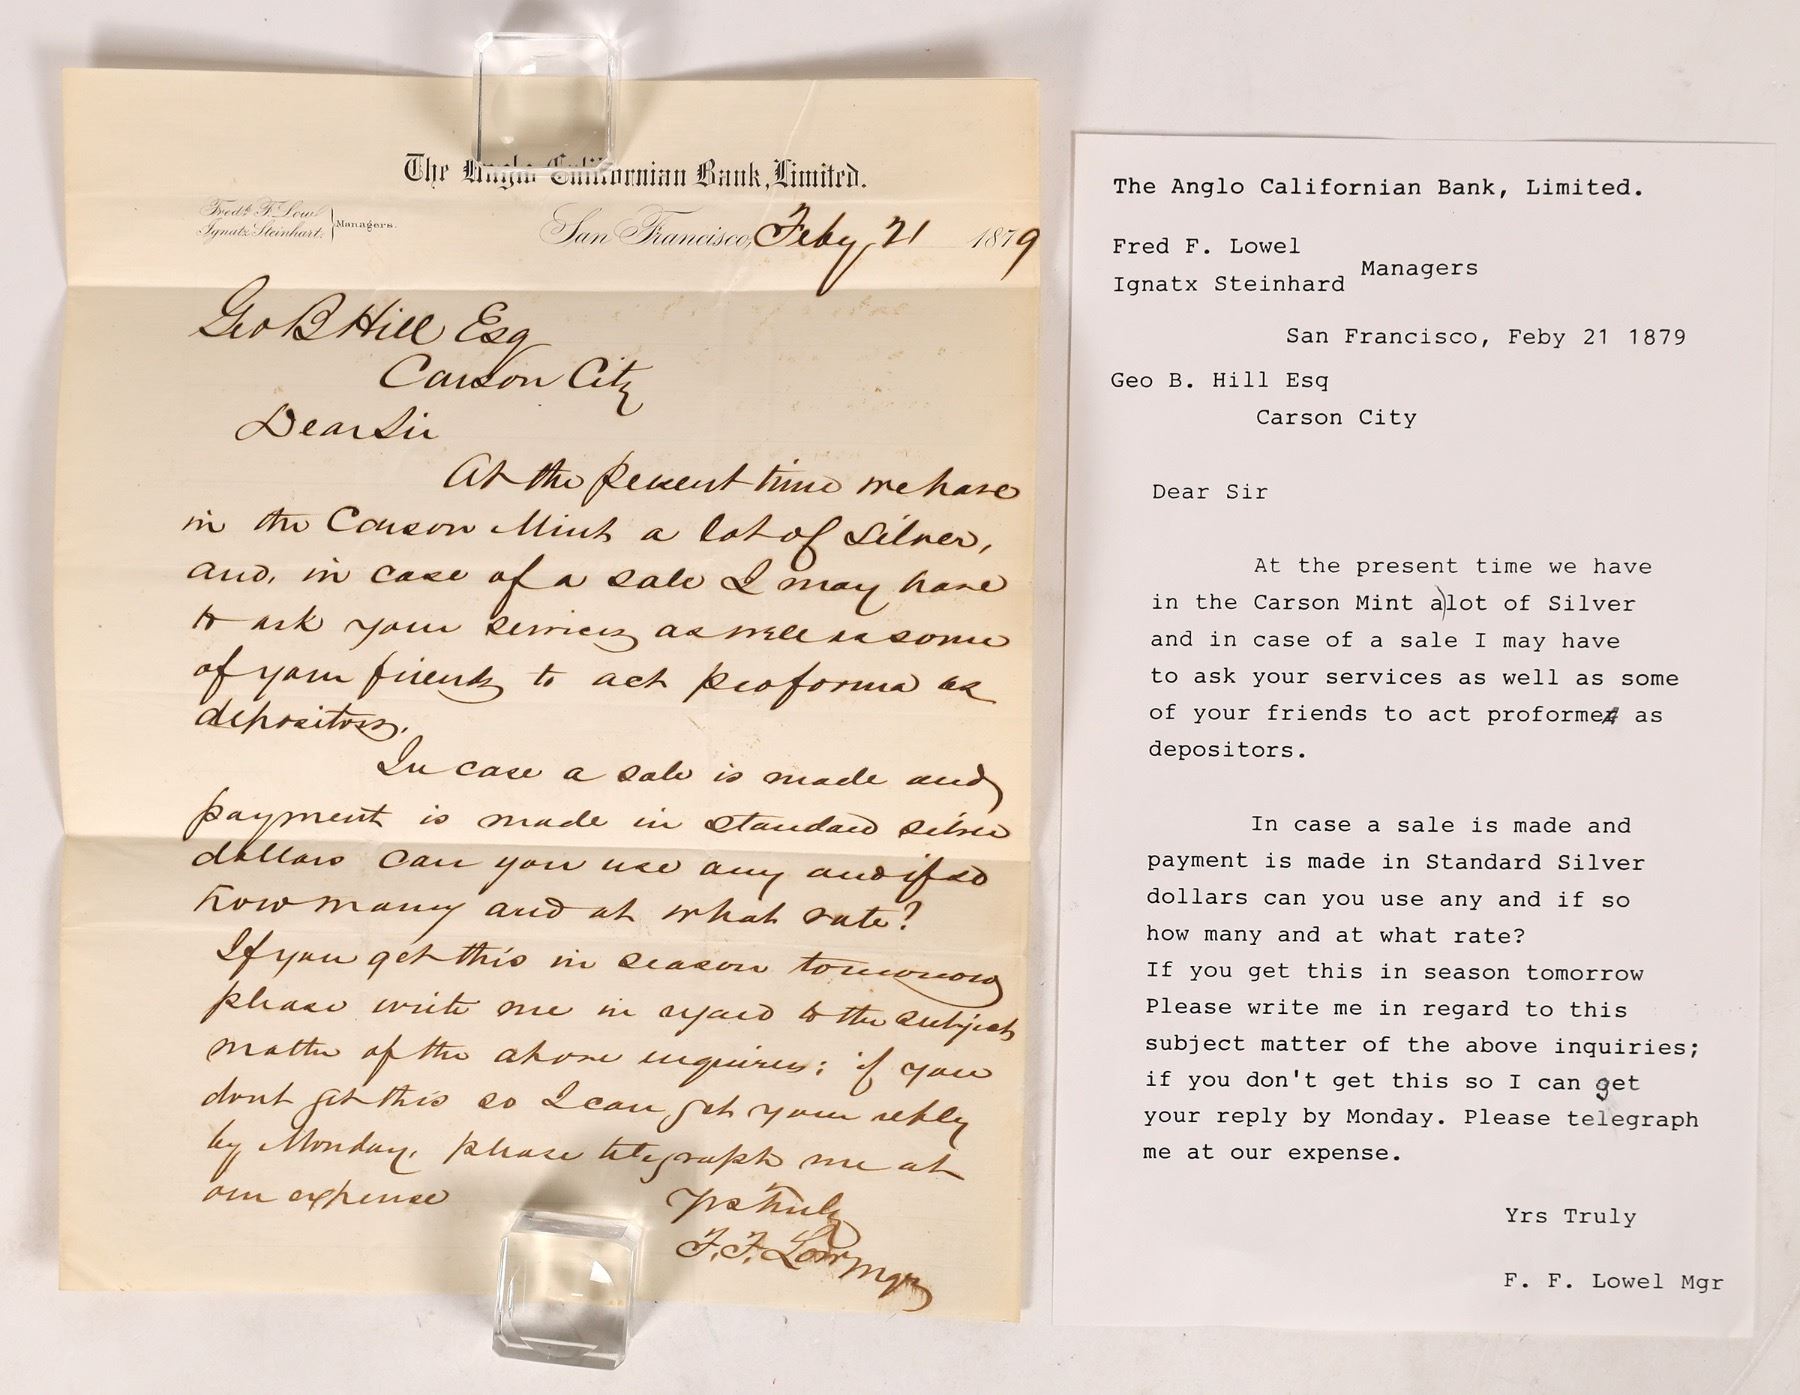 The Anglo Californian Bank, Limited.
Fredk. F. Low
Ignatz Steinhart.
Managers.
San Francisco, Feby 21 1879
Geo B Hill Esq
Carson City
Dear Sir
At the present time we have
in the Carson Mint a lot of Silver,
and, in case of a sale I may have
to ask your services as well as some
of your friends to act proforma as
depositors.
In case a sale is made and
payment is made in standard silver
dollars can you use any and if so
how many and at what rate?
If you get this in season tomorrow
please write me in regard to the subject
matter of the above inquiries; if you
dont get this so I can get your reply
by Monday, please telegraph me at
our expense
Yrs truly
F. F. Low Mgr
The Anglo Californian Bank, Limited.
Fred F. Lowel
Ignatx Steinhard
Managers
San Francisco, Feby 21 1879
Geo B. Hill Esq
Carson City
Dear Sir
At the present time we have
in the Carson Mint a)lot of Silver
and in case of a sale I may have
to ask your services as well as some
of your friends to act proforme as
depositors.
In case a sale is made and
payment is made in Standard Silver
dollars can you use any and if so
how many and at what rate?
If you get this in season tomorrow
Please write me in regard to this
subject matter of the above inquiries;
if you don't get this so I can get
your reply by Monday. Please telegraph
me at our expense.
Yrs Truly
F. F. Lowel Mgr